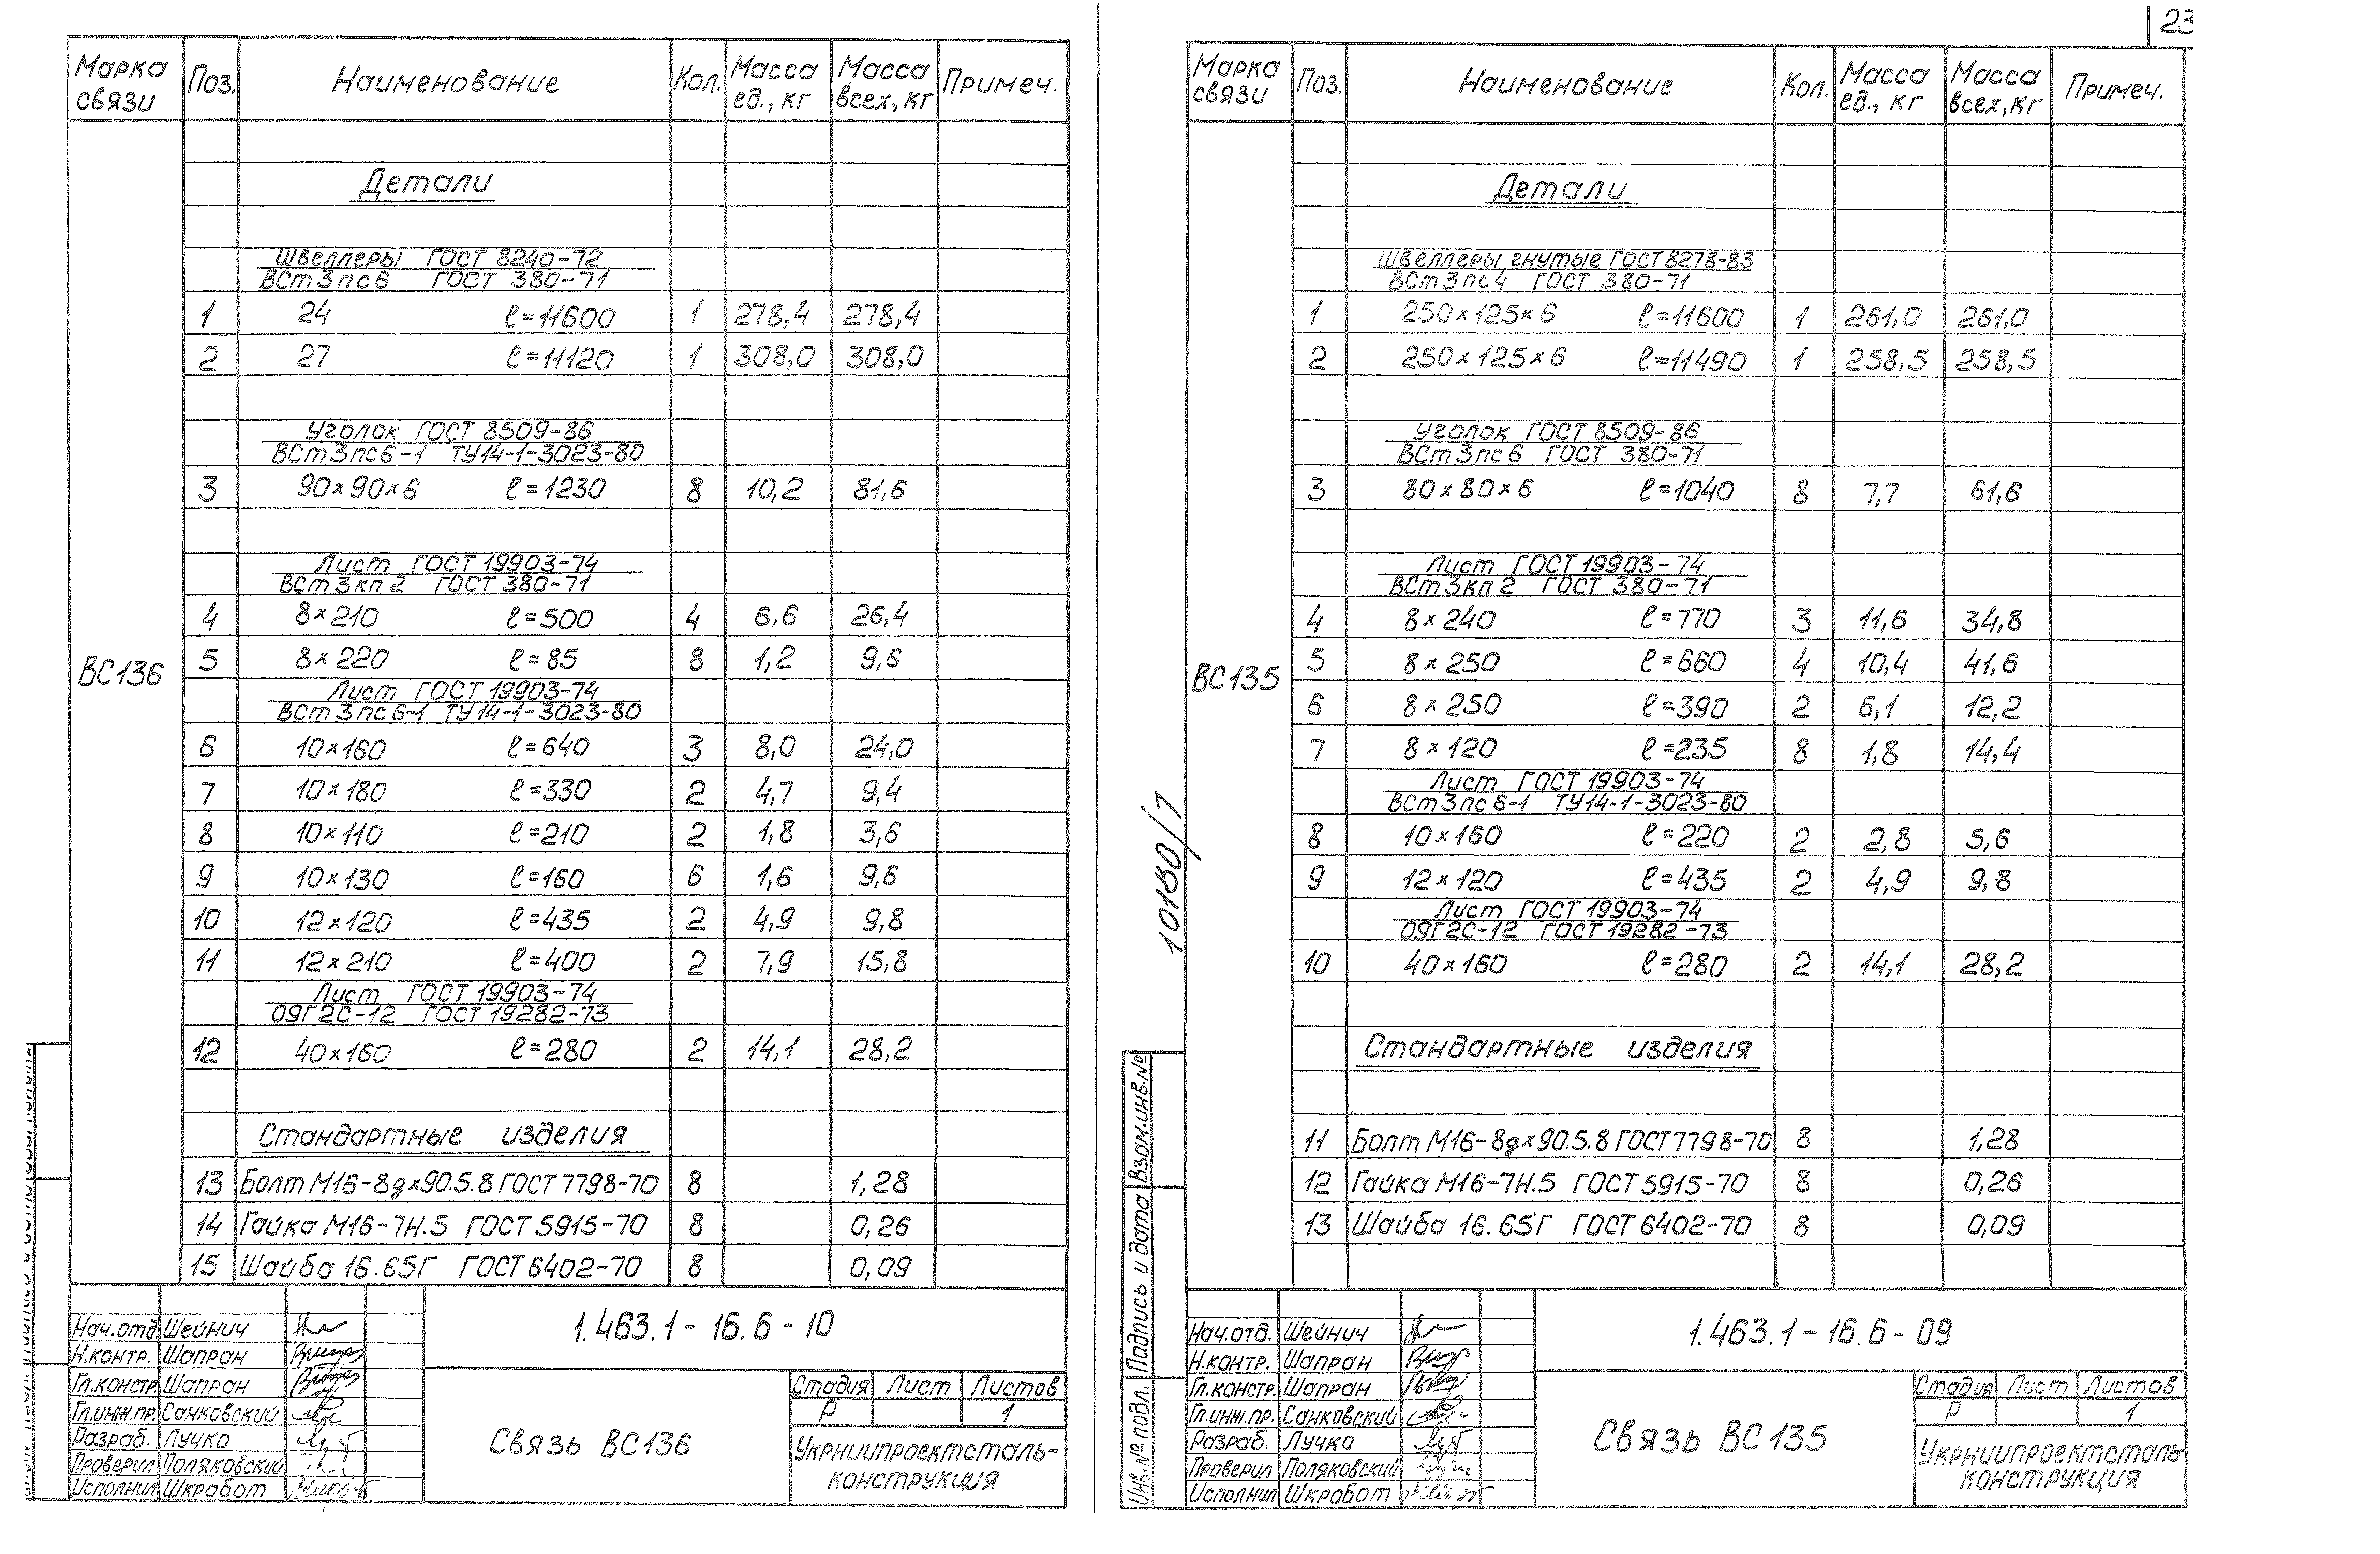 23
Марка связи | Поз. | Наименование | Кол. | Масса ед., кг | Масса всех, кг | Примеч.
ВС136
Детали
Швеллеры ГОСТ 8240-72
ВСт3пс6 ГОСТ 380-71
1 | 24 ℓ=11600 | 1 | 278,4 | 278,4
2 | 27 ℓ=11120 | 1 | 308,0 | 308,0
Уголок ГОСТ 8509-86
ВСт3пс6-1 ТУ14-1-3023-80
3 | 90×90×6 ℓ=1230 | 8 | 10,2 | 81,6
Лист ГОСТ 19903-74
ВСт3кп2 ГОСТ 380-71
4 | 8×210 ℓ=500 | 4 | 6,6 | 26,4
5 | 8×220 ℓ=85 | 8 | 1,2 | 9,6
Лист ГОСТ 19903-74
ВСт3пс6-1 ТУ14-1-3023-80
6 | 10×160 ℓ=640 | 3 | 8,0 | 24,0
7 | 10×180 ℓ=330 | 2 | 4,7 | 9,4
8 | 10×110 ℓ=210 | 2 | 1,8 | 3,6
9 | 10×130 ℓ=160 | 6 | 1,6 | 9,6
10 | 12×120 ℓ=435 | 2 | 4,9 | 9,8
11 | 12×210 ℓ=400 | 2 | 7,9 | 15,8
Лист ГОСТ 19903-74
09Г2С-12 ГОСТ 19282-73
12 | 40×160 ℓ=280 | 2 | 14,1 | 28,2
Стандартные изделия
13 | Болт М16-8g×90.5.8 ГОСТ 7798-70 | 8 | 1,28
14 | Гайка М16-7Н.5 ГОСТ 5915-70 | 8 | 0,26
15 | Шайба 16.65Г ГОСТ 6402-70 | 8 | 0,09
1.463.1-16.6-10
Нач.отд. Шейнич
Н.контр. Шапран
Гл.констр. Шапран
Гл.инж.пр. Санковский
Разраб. Лучко
Проверил Поляковский
Исполнил Шкробот
Связь ВС136
Стадия | Лист | Листов
Р | 1
Укрниипроектсталь-
конструкция
Марка связи | Поз. | Наименование | Кол. | Масса ед., кг | Масса всех, кг | Примеч.
ВС135
Детали
Швеллеры гнутые ГОСТ 8278-83
ВСт3пс4 ГОСТ 380-71
1 | 250×125×6 ℓ=11600 | 1 | 261,0 | 261,0
2 | 250×125×6 ℓ=11490 | 1 | 258,5 | 258,5
Уголок ГОСТ 8509-86
ВСт3пс6 ГОСТ 380-71
3 | 80×80×6 ℓ=1040 | 8 | 7,7 | 61,6
Лист ГОСТ 19903-74
ВСт3кп2 ГОСТ 380-71
4 | 8×240 ℓ=770 | 3 | 11,6 | 34,8
5 | 8×250 ℓ=660 | 4 | 10,4 | 41,6
6 | 8×250 ℓ=390 | 2 | 6,1 | 12,2
7 | 8×120 ℓ=235 | 8 | 1,8 | 14,4
Лист ГОСТ 19903-74
ВСт3пс6-1 ТУ14-1-3023-80
8 | 10×160 ℓ=220 | 2 | 2,8 | 5,6
9 | 12×120 ℓ=435 | 2 | 4,9 | 9,8
Лист ГОСТ 19903-74
09Г2С-12 ГОСТ 19282-73
10 | 40×160 ℓ=280 | 2 | 14,1 | 28,2
Стандартные изделия
11 | Болт М16-8g×90.5.8 ГОСТ 7798-70 | 8 | 1,28
12 | Гайка М16-7Н.5 ГОСТ 5915-70 | 8 | 0,26
13 | Шайба 16.65Г ГОСТ 6402-70 | 8 | 0,09
10180/7
Взам.инв.№
Подпись и дата
Инв.№ подл.
1.463.1-16.6-09
Нач.отд. Шейнич
Н.контр. Шапран
Гл.констр. Шапран
Гл.инж.пр. Санковский
Разраб. Лучко
Проверил Поляковский
Исполнил Шкробот
Связь ВС135
Стадия | Лист | Листов
Р | 1
Укрниипроектсталь
конструкция